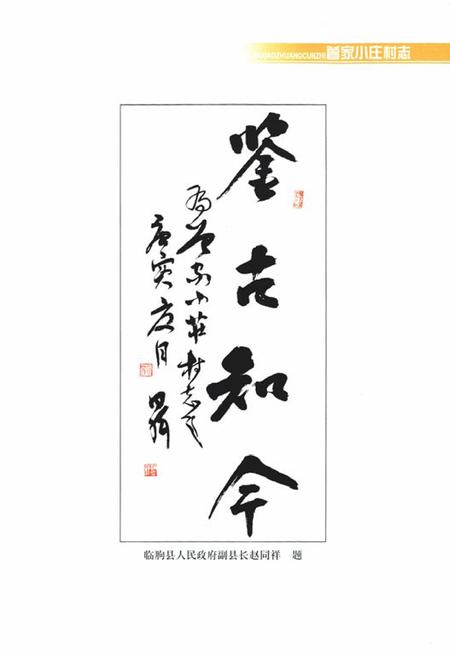 管家小庄村志
鉴古知今
为管家小莊村志
庚寅夏月
临朐县人民政府副县长赵同祥 题